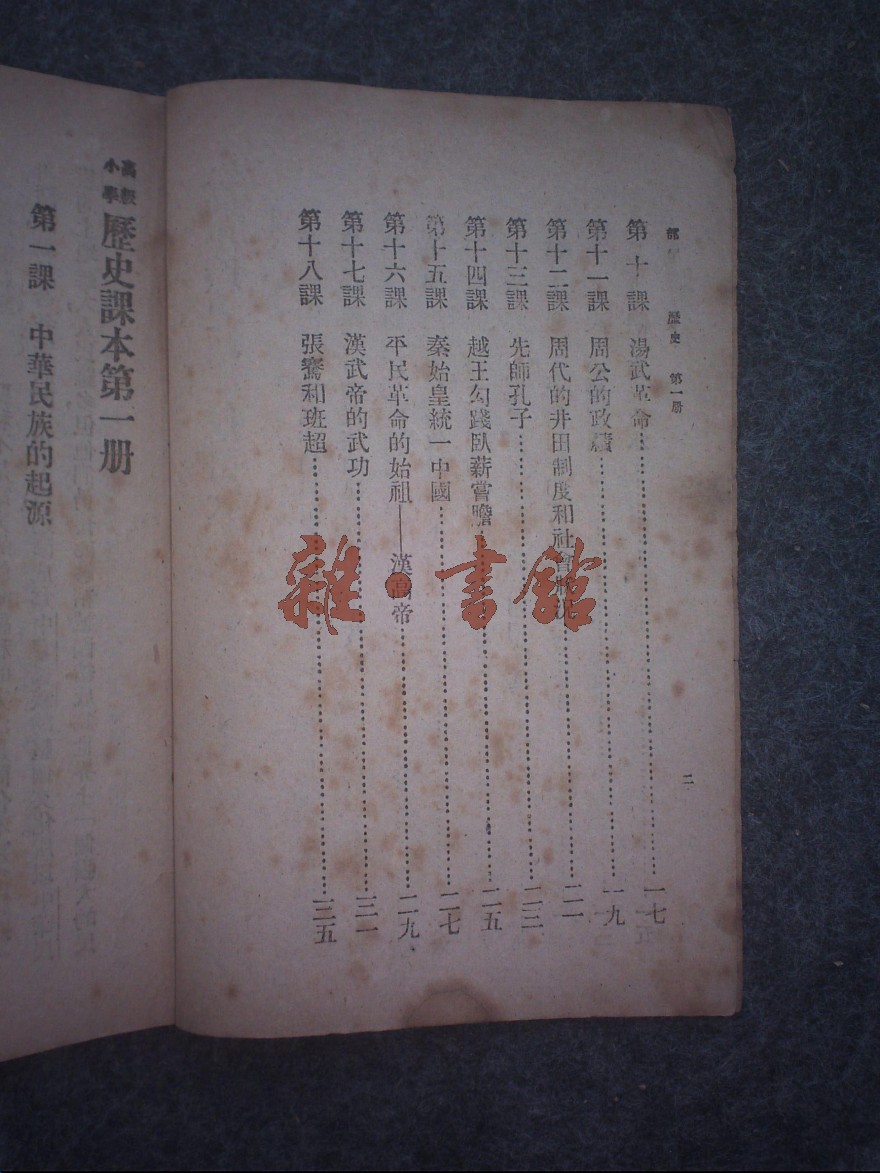 歷史 第一册 二
第十課 湯武革命……一七
第十一課 周公的政績……一九
第十二課 周代的井田制度和社會狀況……二一
第十三課 先師孔子……二三
第十四課 越王勾踐臥薪嘗膽……二五
第十五課 秦始皇統一中國……二七
第十六課 平民革命的始祖——漢高帝……二九
第十七課 漢武帝的武功……三一
第十八課 張騫和班超……三五
高級小學 歷史課本第一册
第一課 中華民族的起源
雜·書館